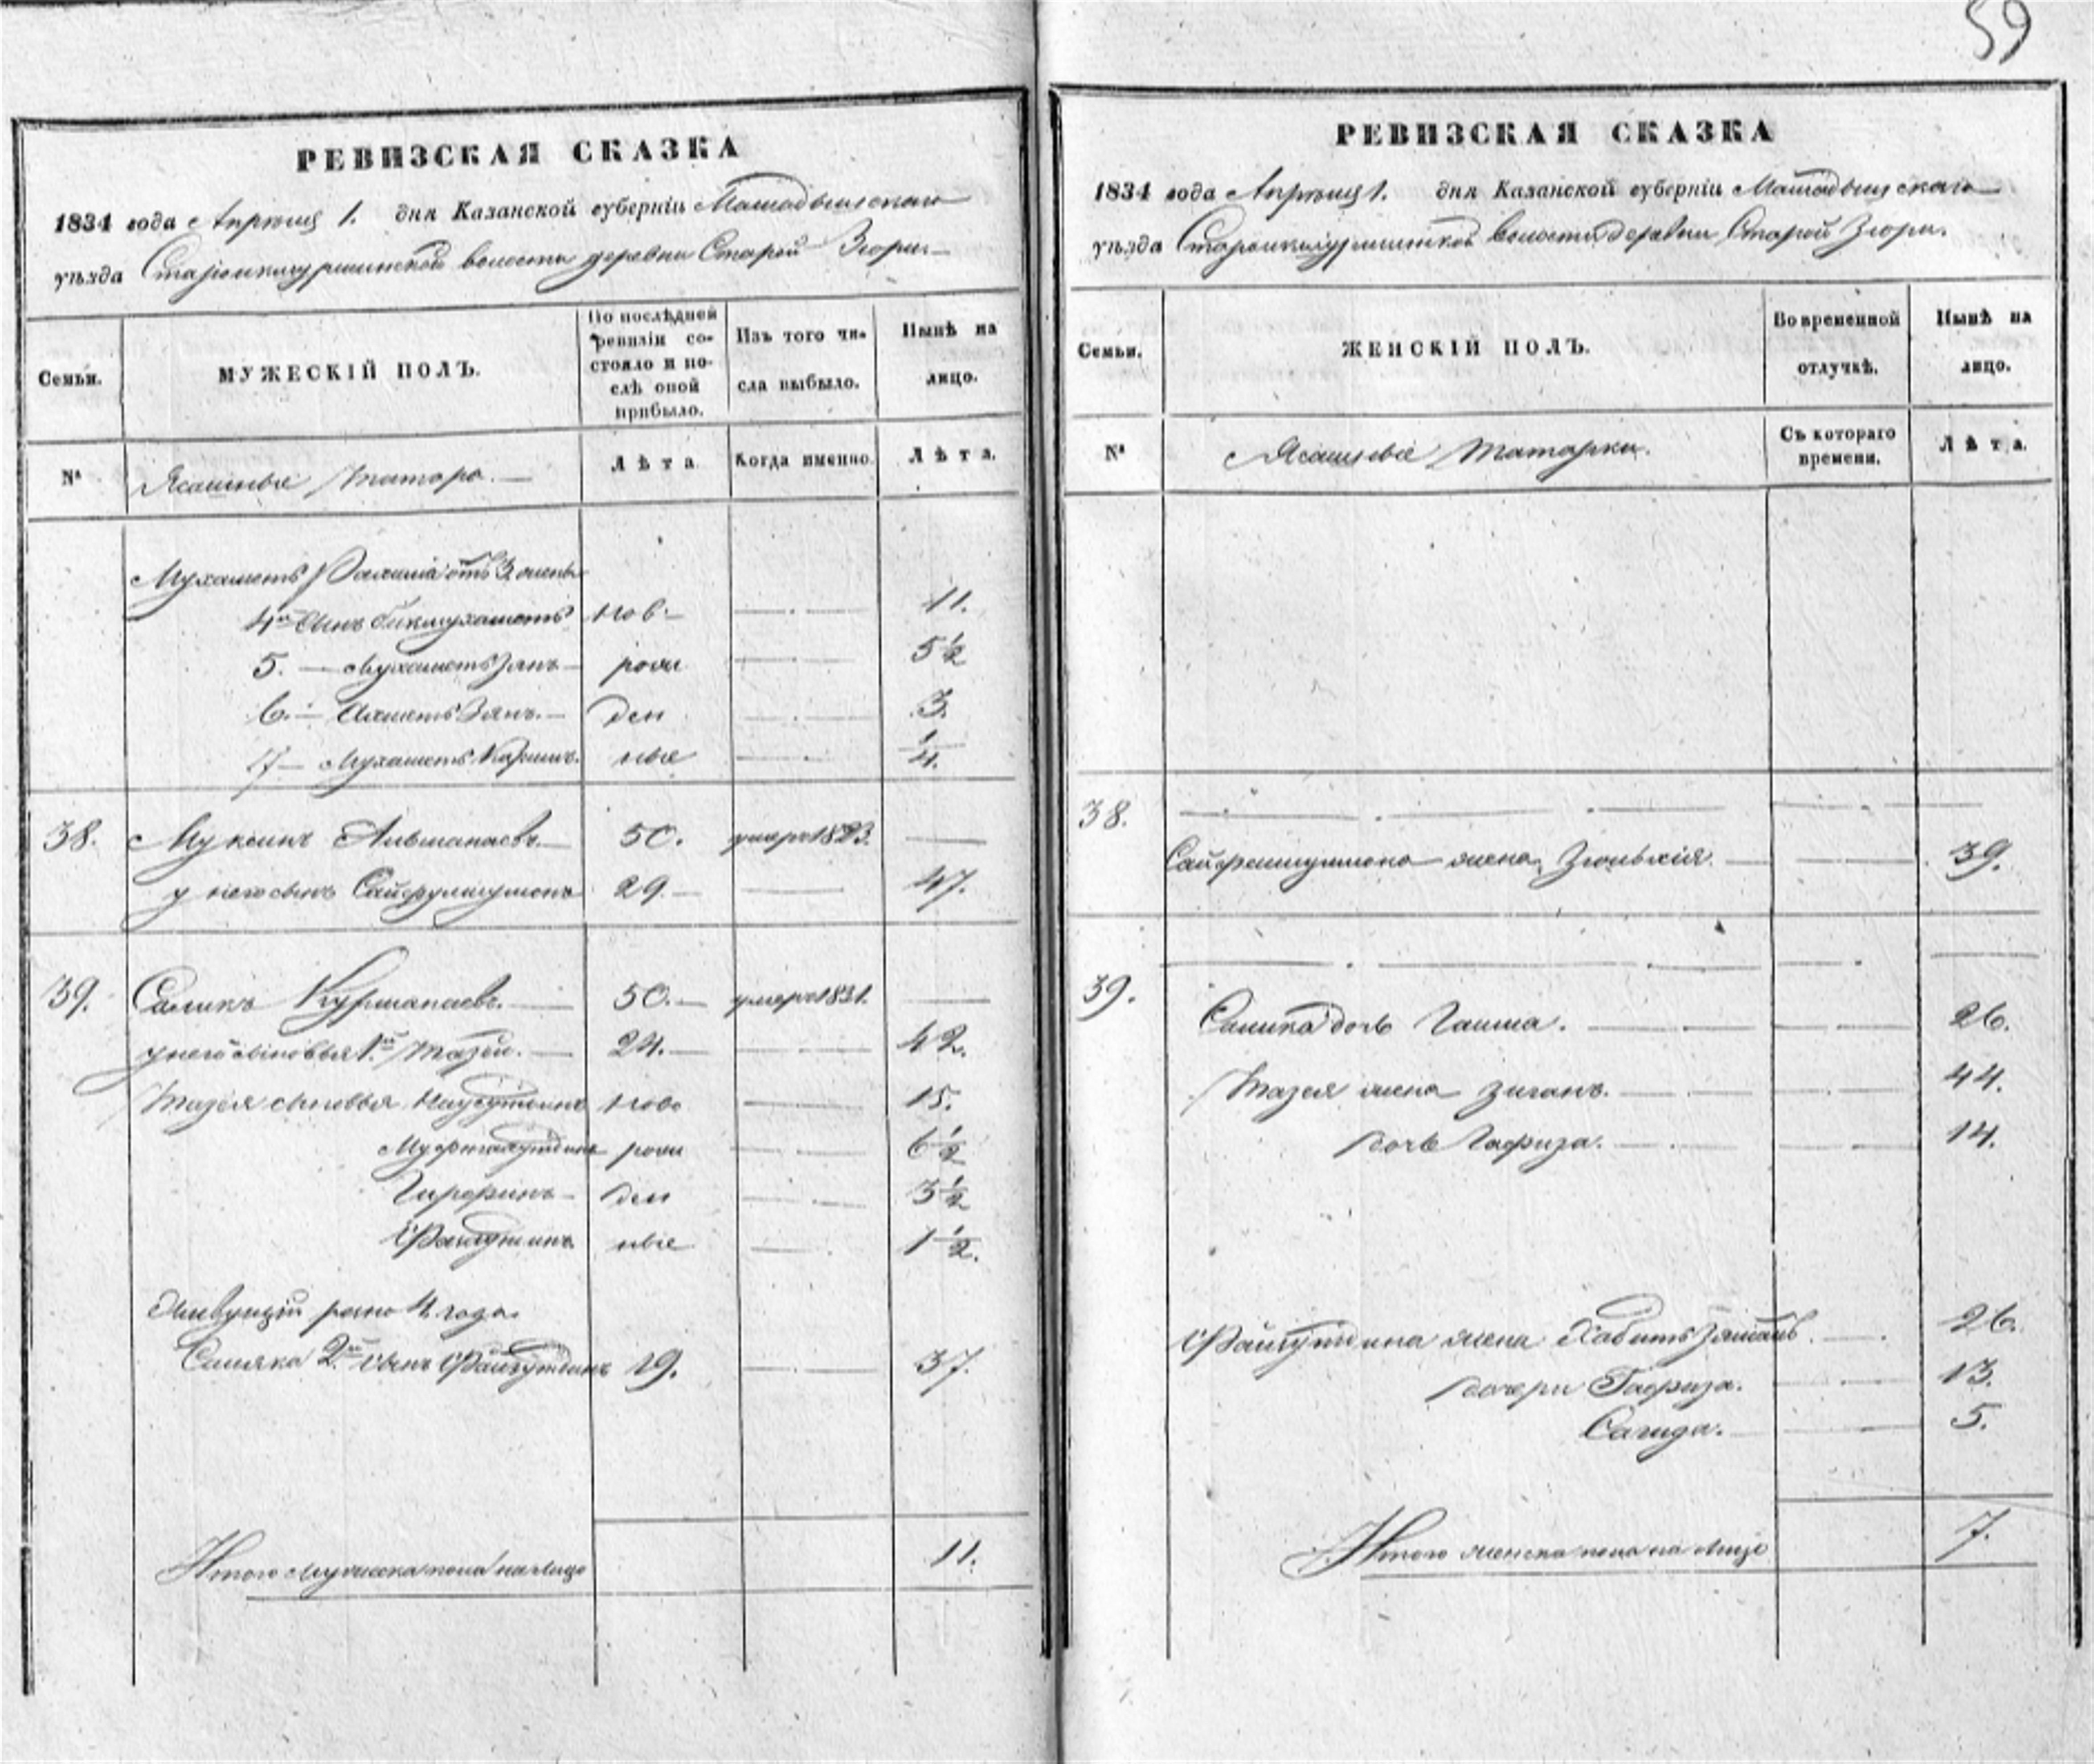 59
РЕВИЗСКАЯ СКАЗКА
1834 года Апреля 1. дня Казанской губерніи Мамадышскаго
уѣзда волости деревни Старой Зюри
Семьи.
МУЖЕСКІЙ ПОЛЪ.
По послѣдней ревизіи состояло и послѣ оной прибыло.
Изъ того числа выбыло.
Нынѣ на лицо.
№
Ясашные Татара.
Лѣта
Когда именно.
Лѣта.
Мухаметъ отъ 3 жены
4й сынъ Бикмухаметъ ново 11.
5. — Мухаметъ Зянъ рож 5½
6. — Ахметъ Зянъ ден 3.
7 — Мухаметъ Каримъ ные ¼.
38. Муксинъ 50. умеръ 1823.
у него сынъ 29. 47.
39. Салихъ Курманаевъ 50. умеръ 1831.
у него сыновья 1й Тазей. 24. 42.
Тазея сыновья ново 15.
рож 6½
ден 3½
ные 1½.
рожно 4 года
2й сынъ Файзутдинъ 19. 37.
Итого мужеска пола на лицо 11.
РЕВИЗСКАЯ СКАЗКА
1834 года Апреля 1. дня Казанской губерніи Мамадышскаго
уѣзда волости деревни Старой Зюри.
Семьи.
ЖЕНСКІЙ ПОЛЪ.
Во временной отлучкѣ.
Нынѣ на лицо.
№
Ясашные Татарки.
Съ котораго времени.
Лѣта.
38.
жена 39.
39.
дочь 26.
Тазея жена 44.
дочь Гафиза. 14.
Файзутдина жена 26.
дочери Гафиза. 13.
Сагида. 5.
Итого женска пола на лицо 7.